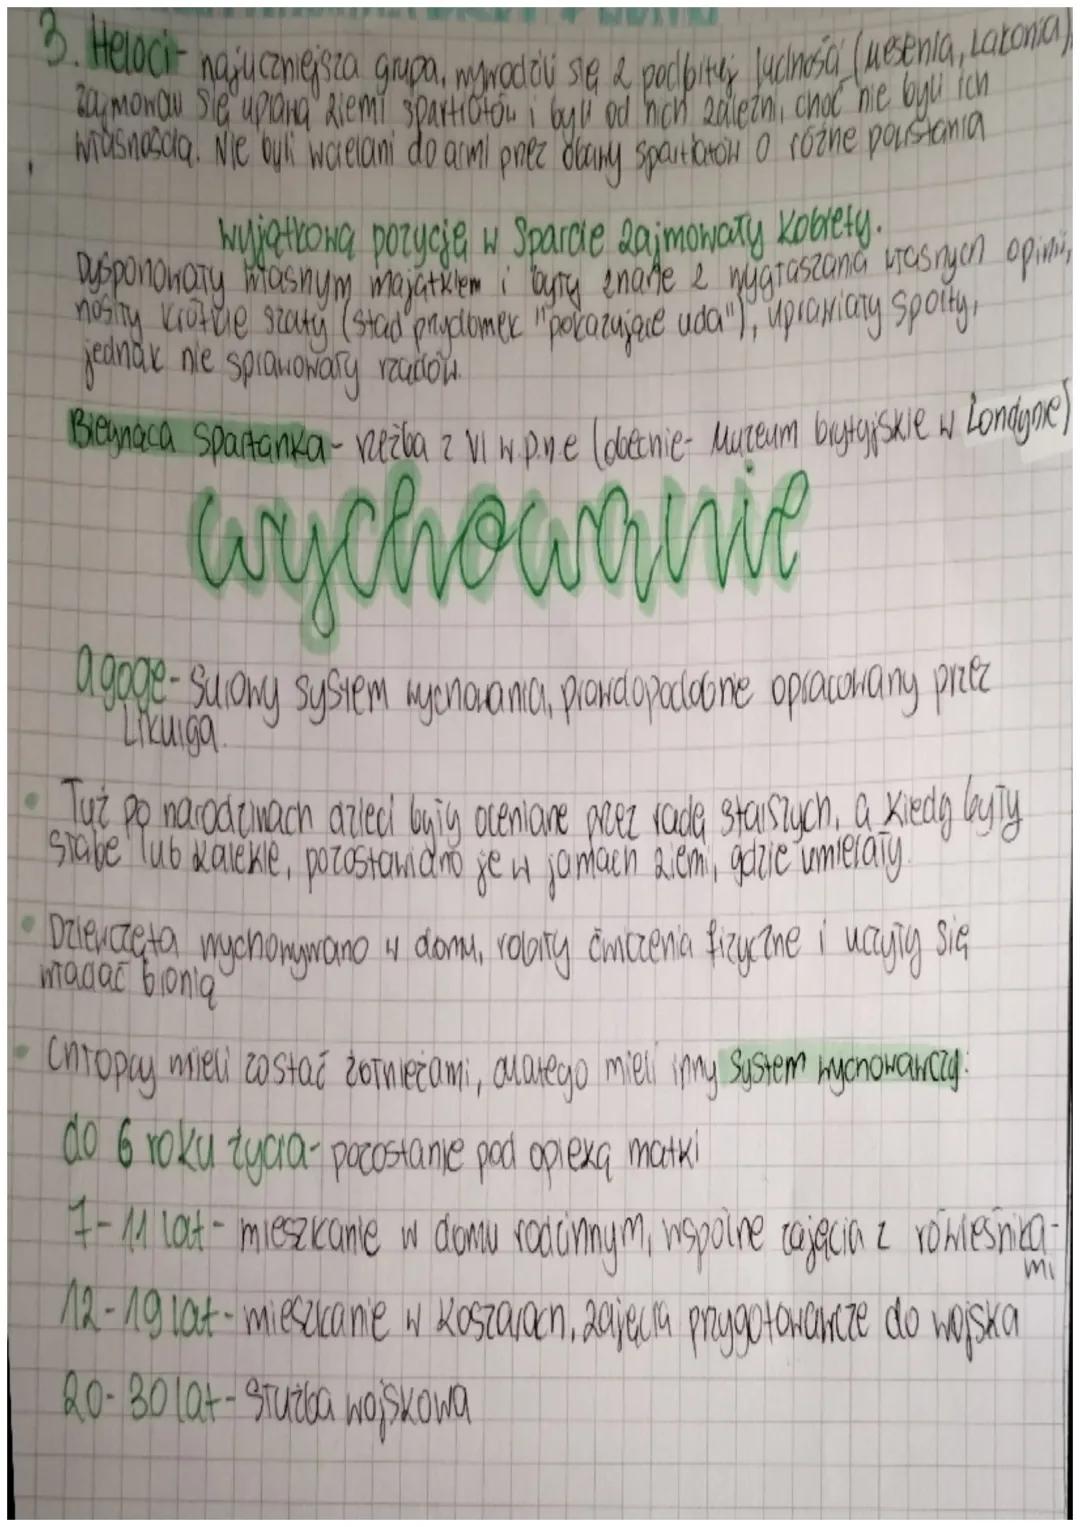 3. Heloci - najliczniejsza grupa, wywodzili się z podbitej ludności (Mesenia, Lakonia)
zajmowali się uprawą ziemi spartiatów i byli od nich zależni, choć nie byli ich
własnością. Nie byli wcielani do armi przez obawy spartiatów o różne powstania
Wyjątkową pozycję w Sparcie zajmowały kobiety.
Dysponowały własnym majątkiem i były znane z wygłaszania własnych opinii,
nosiły krótkie szaty (stąd przydomek "pokazujące uda"), uprawiały sporty,
jednak nie sprawowały rządów.
Biegnąca Spartanka - rzeźba z VI w.p.n.e (obecnie - Muzeum brytyjskie w Londynie)
wychowanie
agoge - surowy system wychowania, prawdopodobnie opracowany przez
Likurga.
• Tuż po narodzinach dzieci były oceniane przez radę starszych, a kiedy były
słabe lub kalekie, pozostawiano je w jamach ziemi, gdzie umierały.
• Dziewczęta wychowywano w domu, robiły ćwiczenia fizyczne i uczyły się
władać bronią
• Chłopcy mieli zostać żołnieżami, dlatego mieli inny system wychowawczy:
do 6 roku życia - pozostanie pod opieką matki
7-11 lat - mieszkanie w domu rodzinnym, wspólne zajęcia z rówieśnika-
mi
12-19 lat - mieszkanie w koszarach, zajęcia przygotowawcze do wojska
20-30 lat - służba wojskowa